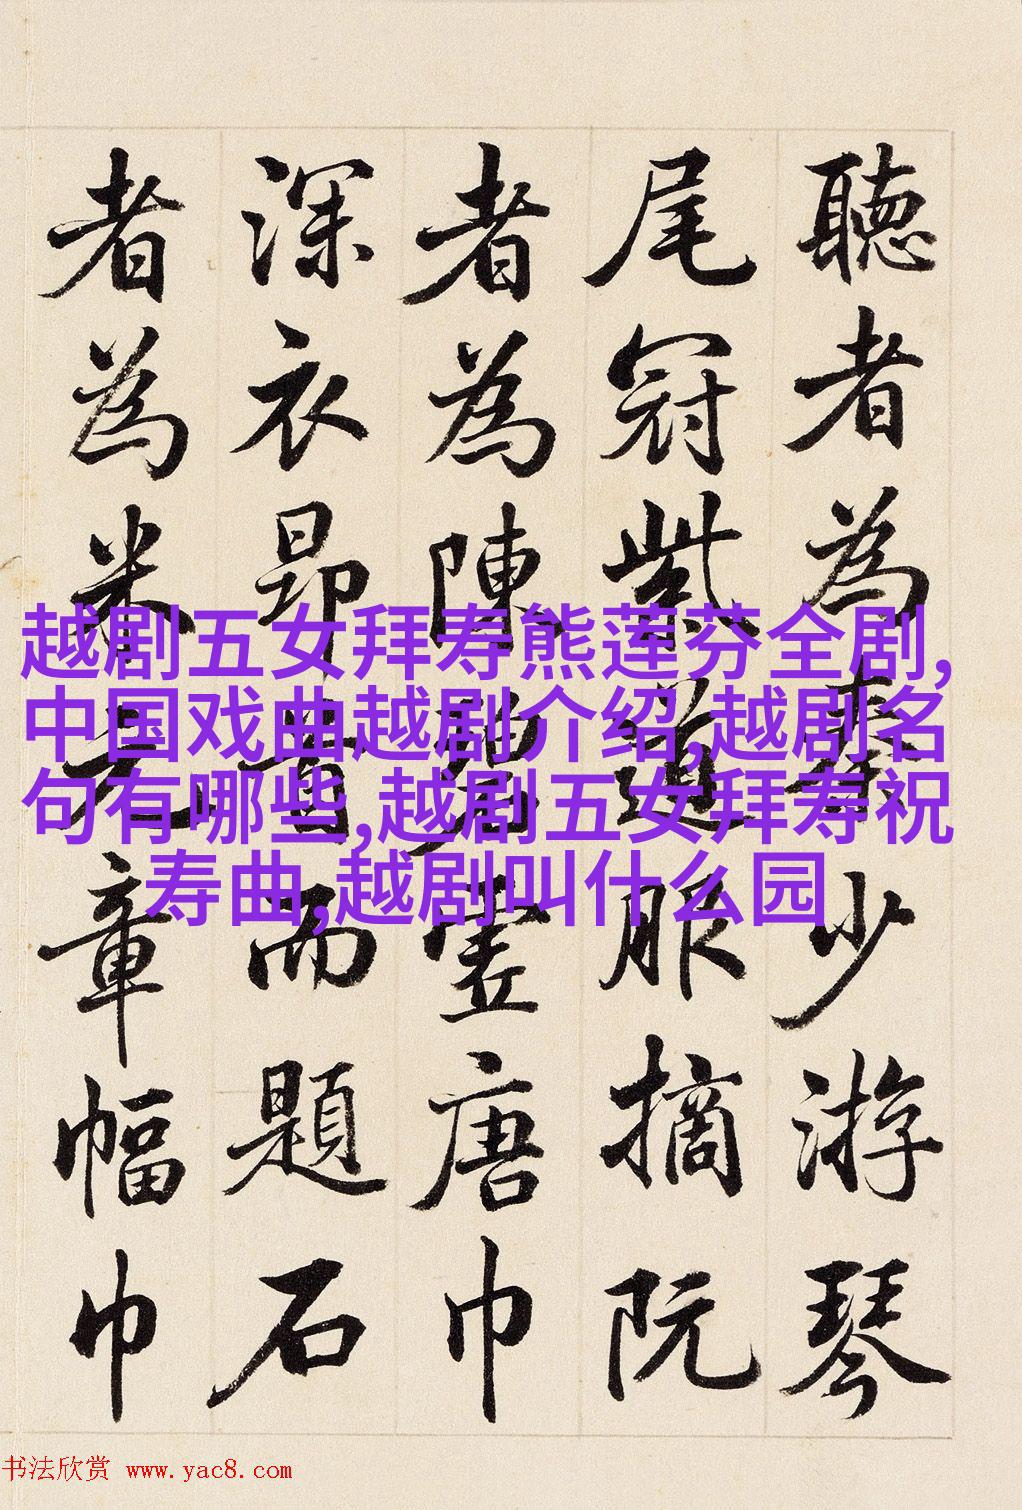 聽者為秦少游琴
尾冠紫道服摘阮
者為陳碧虛唐巾
深衣昂首而題石
者為米元章幅巾
越剧五女拜寿熊莲芬全剧,
中国戏曲越剧介绍,越剧名
句有哪些,越剧五女拜寿祝
寿曲,越剧叫什么园
书法欣赏 www.yac8.com